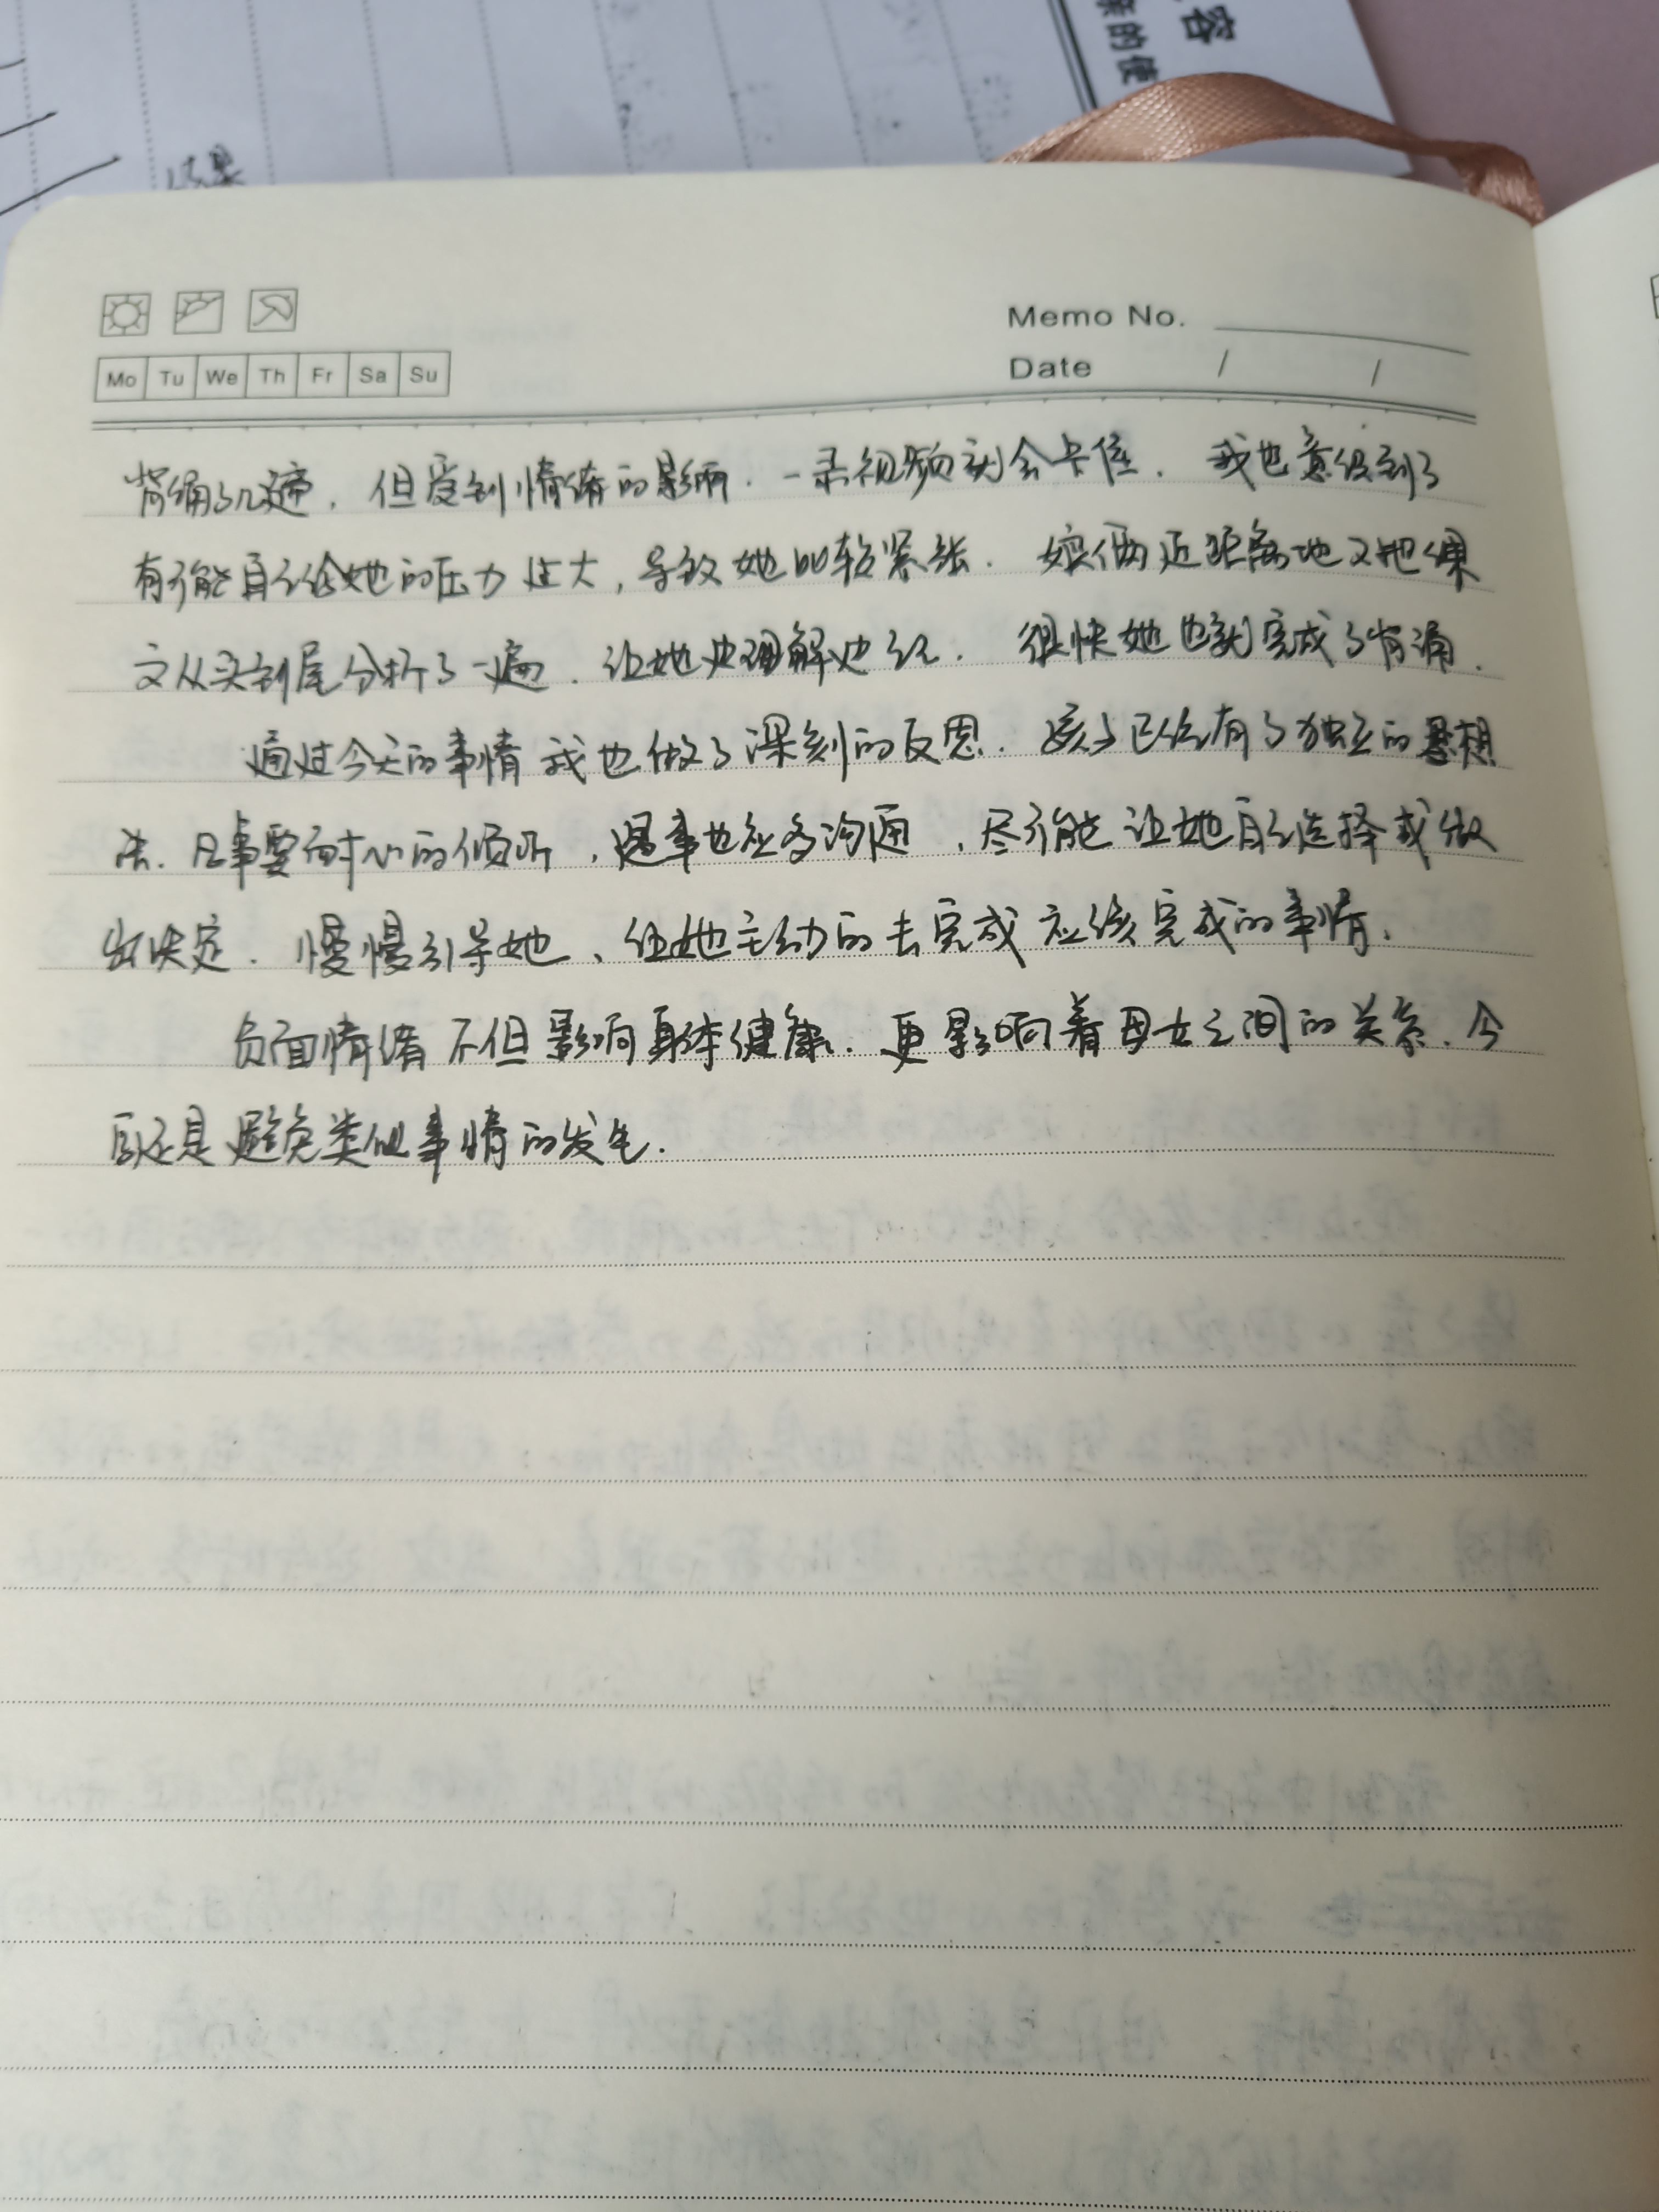 容
亲的使
结果
Memo No.
Mo Tu We Th Fr Sa Su
Date / /
背诵了几遍，但受到情绪的影响．一录视频就会卡住．我也意识到了
有可能自己给她的压力过大，导致她比较紧张．娘俩近距离地又把课
文从头到尾分析了一遍．让她边理解边记．很快她也就完成了背诵．
通过今天的事情我也做了深刻的反思．孩子已经有了独立的思想
法．凡事要耐心的倾听，遇事也应多沟通，尽可能让她自己选择或做
出决定．慢慢引导她、让她主动的去完成应该完成的事情．
负面情绪不但影响身体健康．更影响着母女之间的关系．今
后还是避免类似事情的发生．